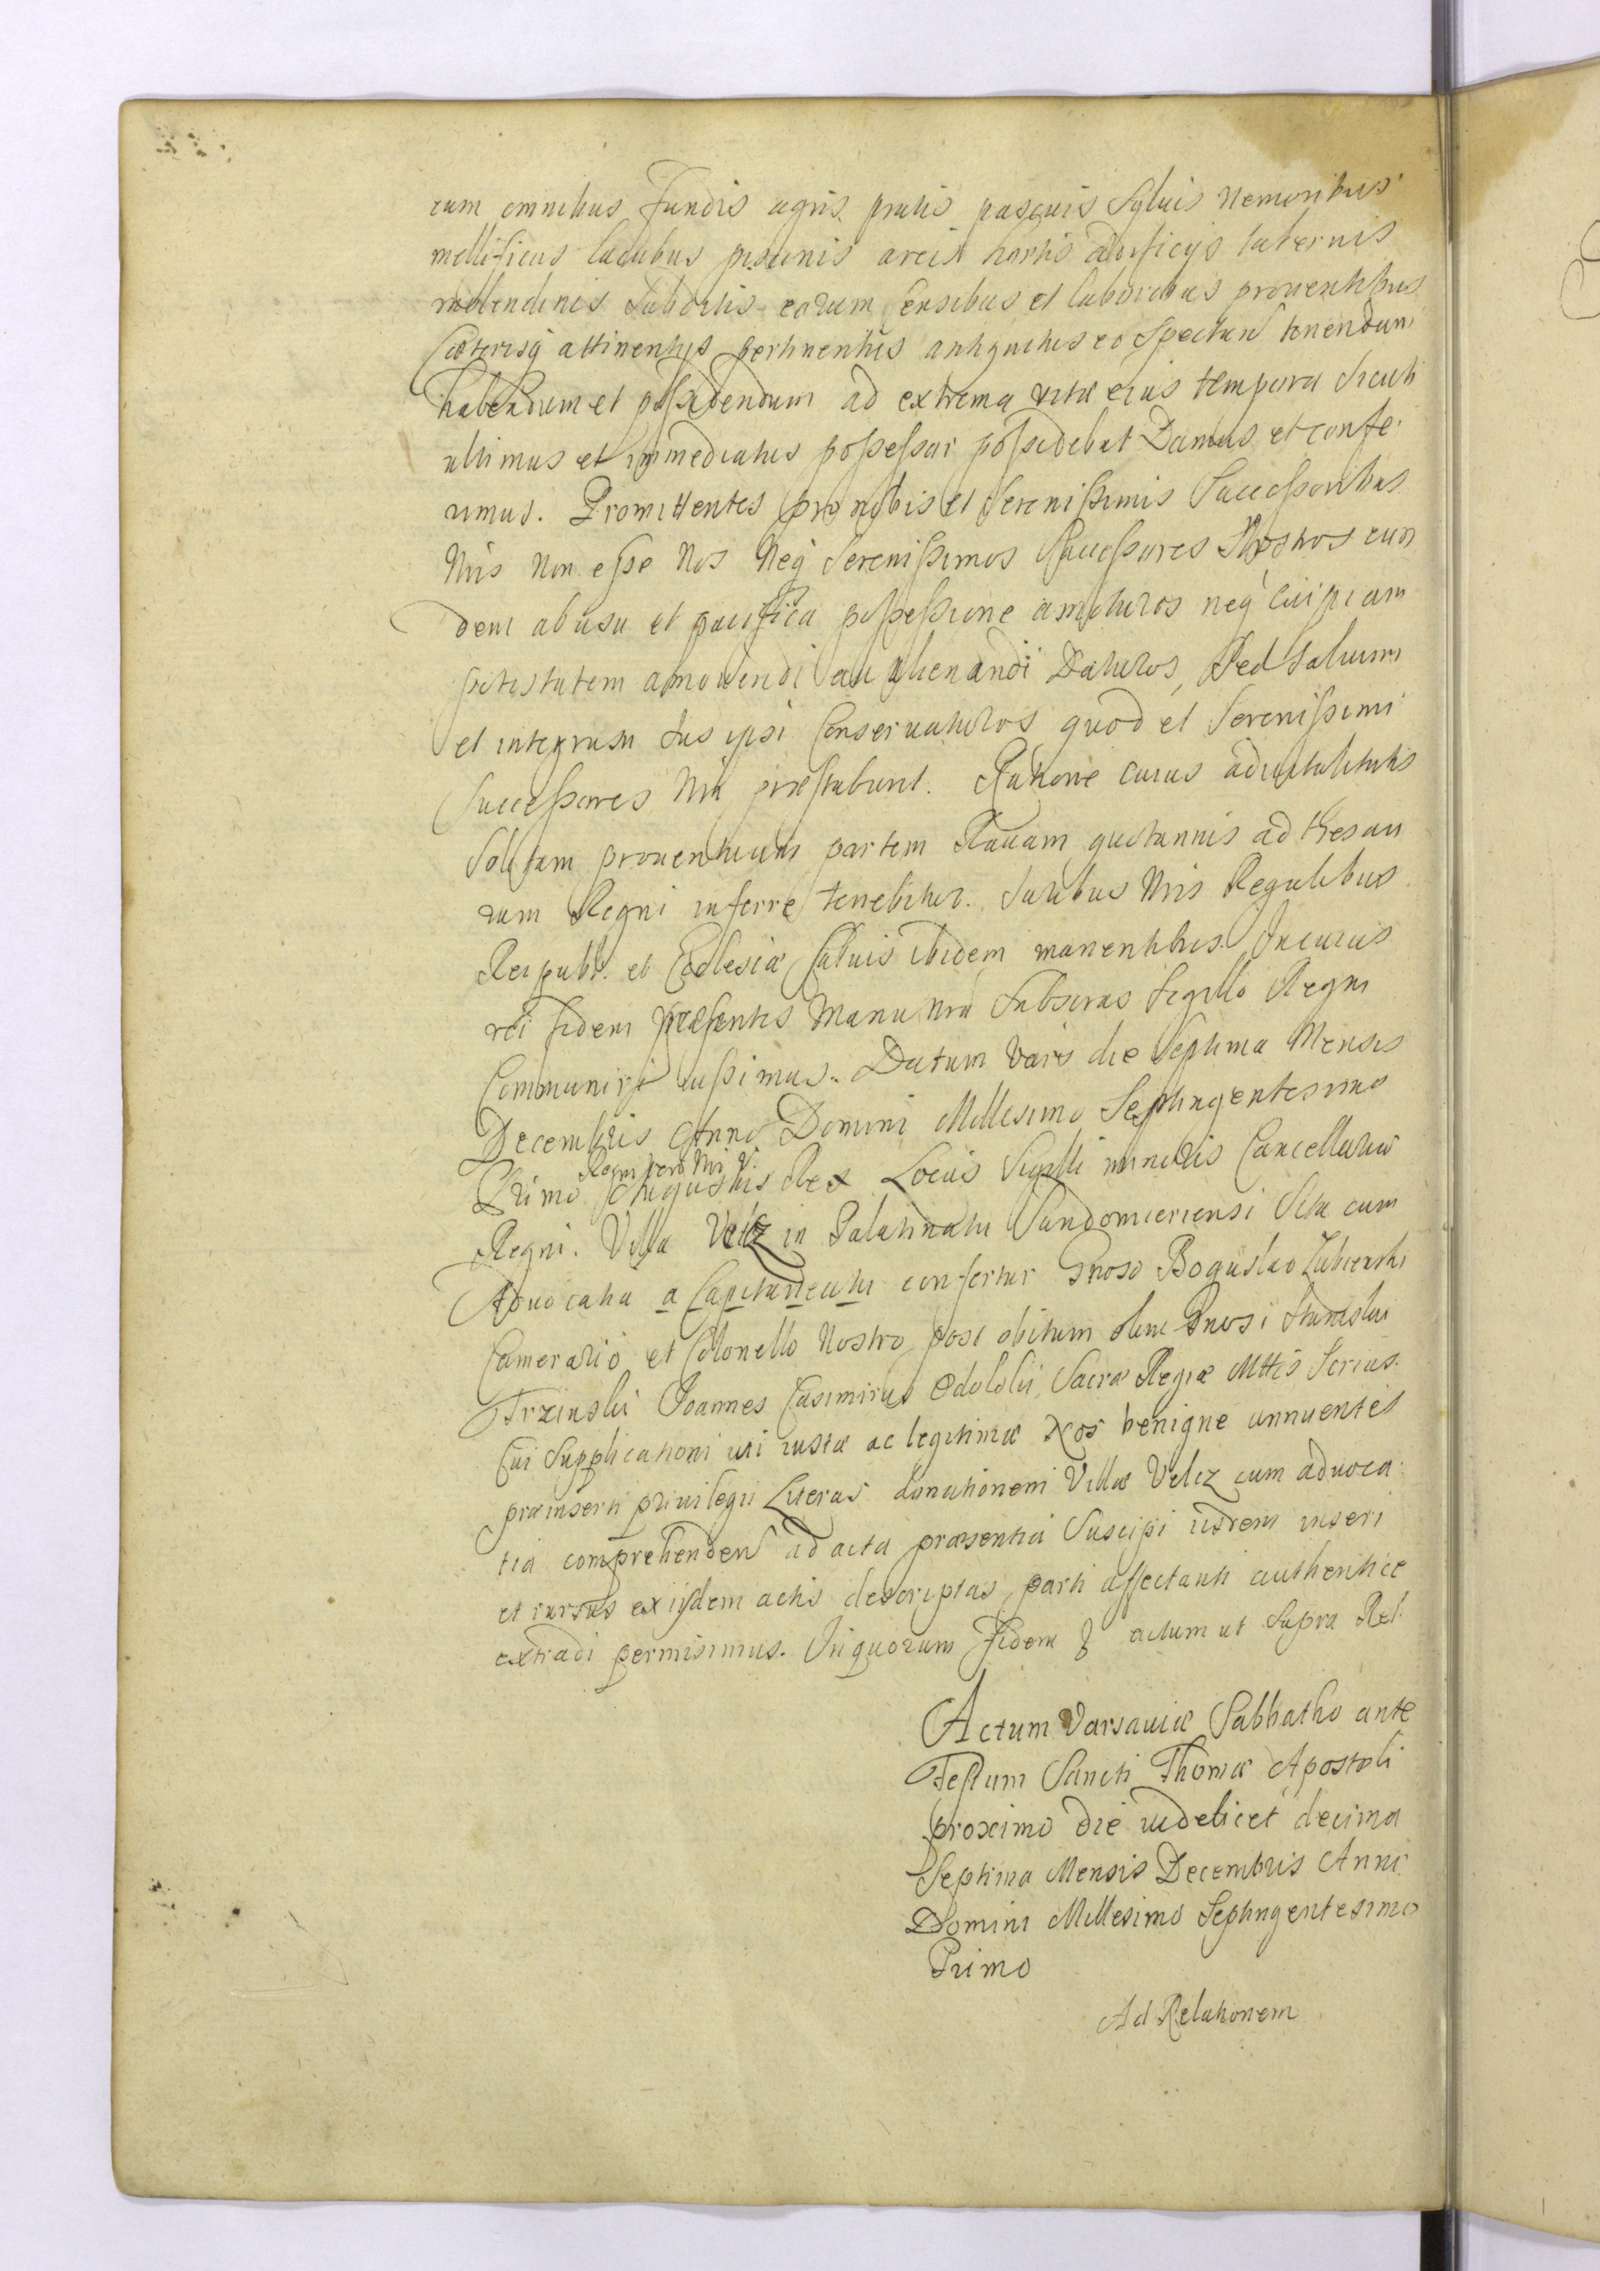 cum omnibus Fundis agris pratis pascuis Sylvis Nemoribus
mellificus lacubus piscinis areis hortis ædificijs tabernis
molendinis Subditis eorum Censibus et laboribus proventibus
Cæterisq attinentijs pertinentijs antiquitus eo Spectan tenendum
habendum et possidendum ad extrema vitæ eius tempora Sicuti
ultimus et immediatus possessor possidebat Damus et confe
rimus. Promittentes pro nobis et Serenissimis Successoribus
Nris Non esse Nos Neq Serenissimos Successores Nostros eun
dem ab usu et pacifica possessione amoturos neq cuipiam
potestatem amovendi au alienandi Daturos, Sed Salvum
et integrum Jus ipsi Conservaturos quod et Serenissimi
Successores Nri præstabunt. Ratione cuius advitalitatis
Solitam proventuum partem Ravam quotannis ad thesau
rum Regni inferre tenebitur. Juribus Nris Regalibus
Reipubl. et Ecclesiæ Salvis ibidem manentibus. In cuius
rei fidem præsentes Manu Nra Subscras Sigillo Regni
Communiri iussimus. Datum Vars die Septima Mensis
Decembris Anno Domini Millesimo Septingentesimo
Regni vero Nri V.
Primo Augustus Rex Locus Sigilli minoris Cancellariæ
Regni. Villa Velcz in Palatinatu Sandomieriensi Sita cum
Advocatia a Capitaneatu confertur Gnoso Boguslao Lubienski
Camerario et Colonello Nostro post obitum olim Gnosi Stanislai
Trzinskii Joannes Casimirus Sacræ Regiæ Mttis Scrius.
Cui Supplicationi uti iustæ ac legitimæ Nos benigne annuentes
præinserti privilegii Literas donationem Villæ Velcz cum advoca
tia comprehenden ad acta præsentia Suscipi iisdem inseri
et rursus ex ijsdem actis descriptas parti affectanti authentice
extradi permisimus. In quorum fidem actum ut Supra Rel
Actum Varsaviæ Sabbatho ante
Festum Sancti Thomæ Apostoli
proximo die videlicet decima
Septima Mensis Decembris Anni
Domini Millesimo Septingentesimo
Primo
Ad Relationem